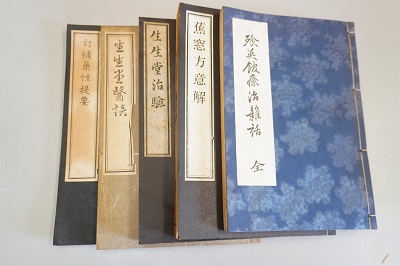 餐英館療治雜話 全
蕉窓方意解
生生堂治驗
生生堂醫談
訂補藥性提要